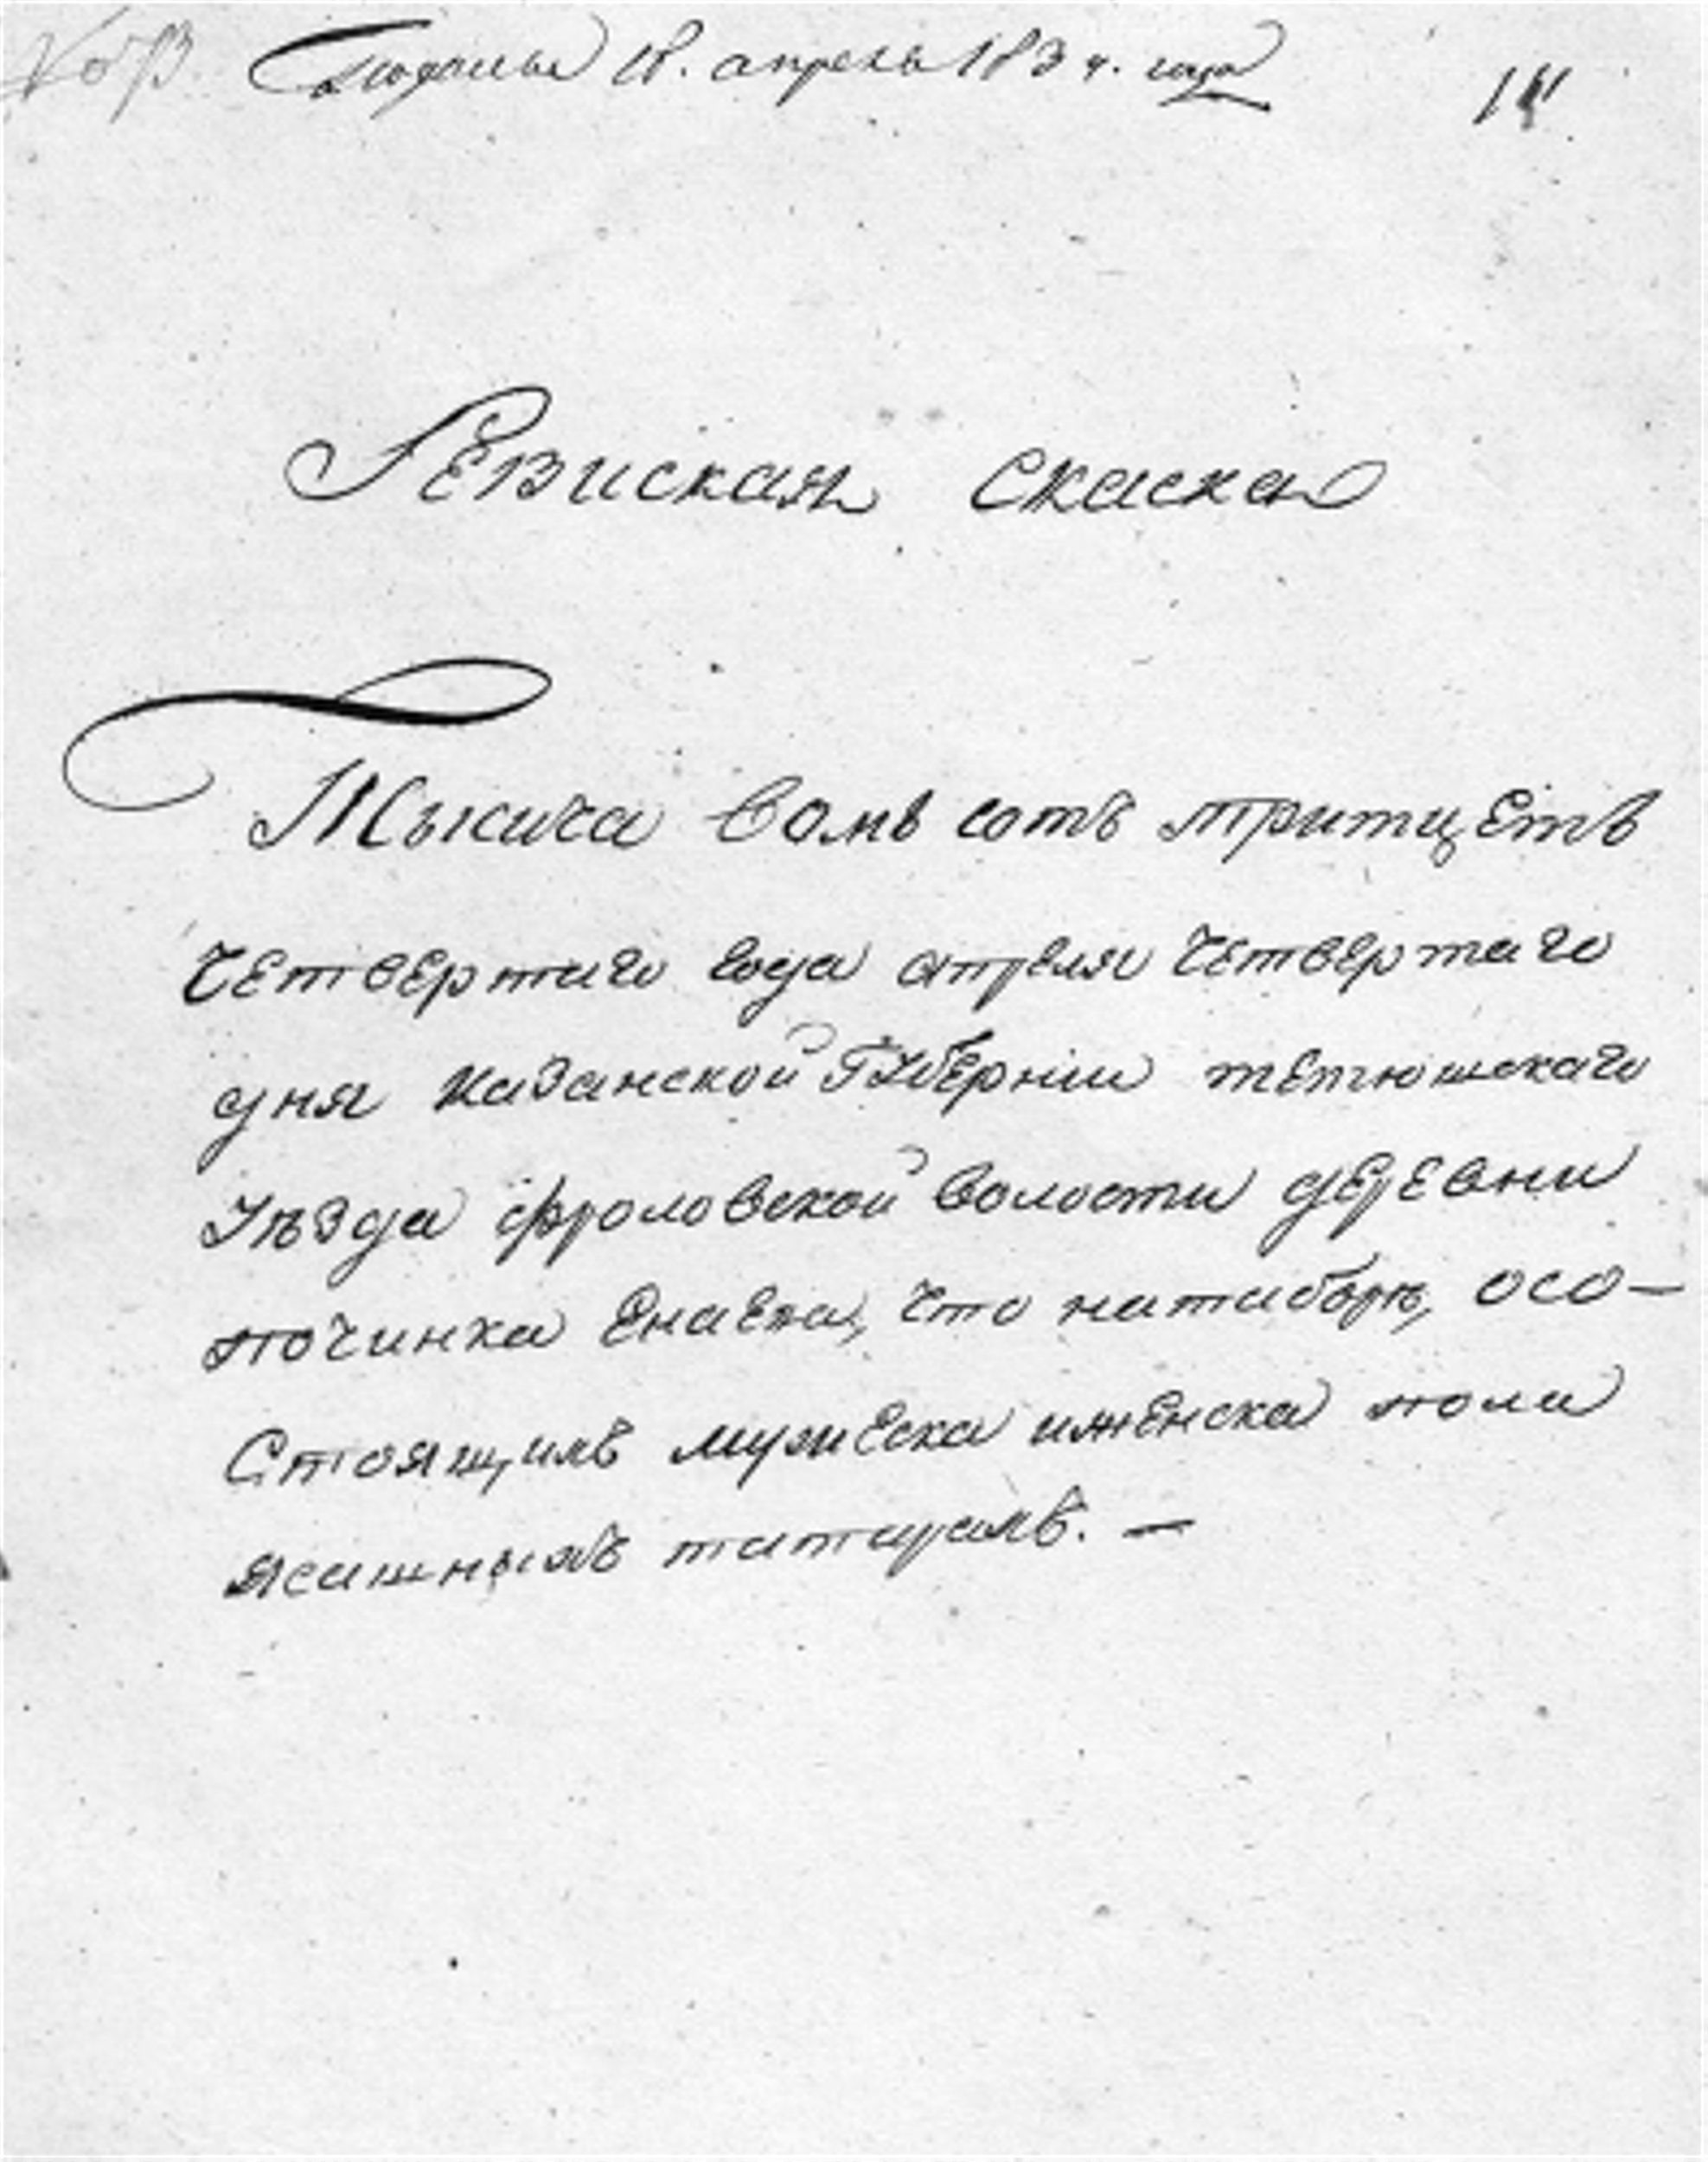 18. апреля 1834. года
Ревиская скаска
Тысича восмь сотъ тритцеть
четвертаго года апреля четвертаго
дня Казанской Губерніи тетюшскаго
Уѣзда фроловской волости деревни
починка Енаева, что осо-
Стоящимъ мужеска иженска пола
ясашнымъ татарамъ. —